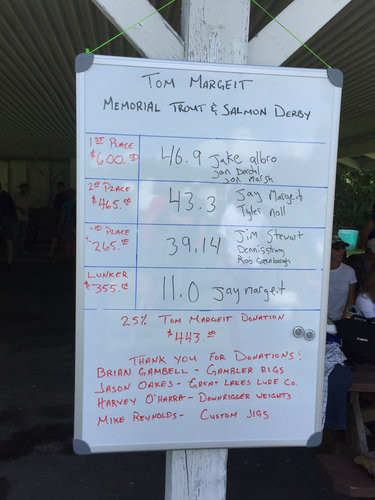 Tom Margeit
Memorial Trout & Salmon Derby
1st Place
$600.00
46.9 Jake albro
Jon
Joe Marsh
2nd Place
$465.00
43.3 Jay Margeit
Tyler noll
Place
265.00
39.14 Jim Stewart
Dennis
Rob
Lunker
$355.00
11.0 Jay margeit
25% Tom Margeit Donation
$443.00
Thank you for Donations:
Brian Gambell - Gambler Rigs
Jason Oakes - Great Lakes Lure Co.
Harvey O'Harra - Downrigger Weights
Mike Reynolds - Custom Jigs